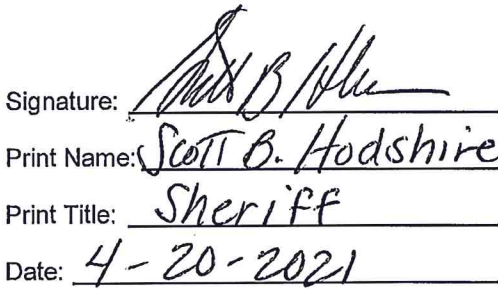 Signature: Scott B Hod
Print Name: Scott B. Hodshire
Print Title: Sheriff
Date: 4-20-2021